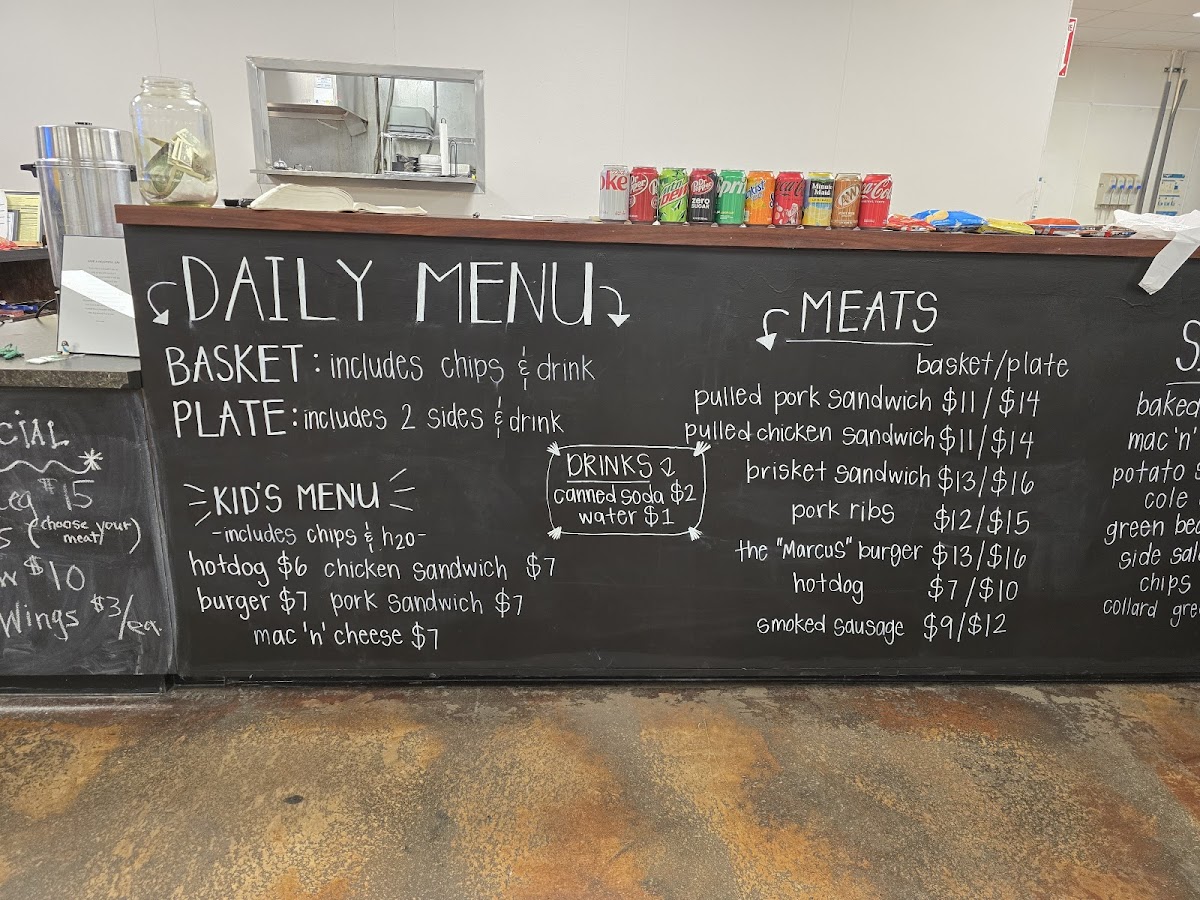 DAILY MENU
BASKET: includes chips & drink
PLATE: includes 2 sides & drink
KID'S MENU
-includes chips & h20-
hotdog $6 chicken sandwich $7
burger $7 pork sandwich $7
mac 'n' cheese $7
DRINKS
canned soda $2
water $1
MEATS
basket/plate
pulled pork sandwich $11/$14
pulled chicken sandwich $11/$14
brisket sandwich $13/$16
pork ribs $12/$15
the "Marcus" burger $13/$16
hotdog $7/$10
smoked sausage $9/$12
baked
mac 'n'
potato
cole
green
side
chips
collard
$15
(choose your
meat)
$10
Wings $3/ea.
oke
Dr Pepper
Dr Pepper
ZERO
SUGAR
Minute
Maid
A&W
Coca-Cola